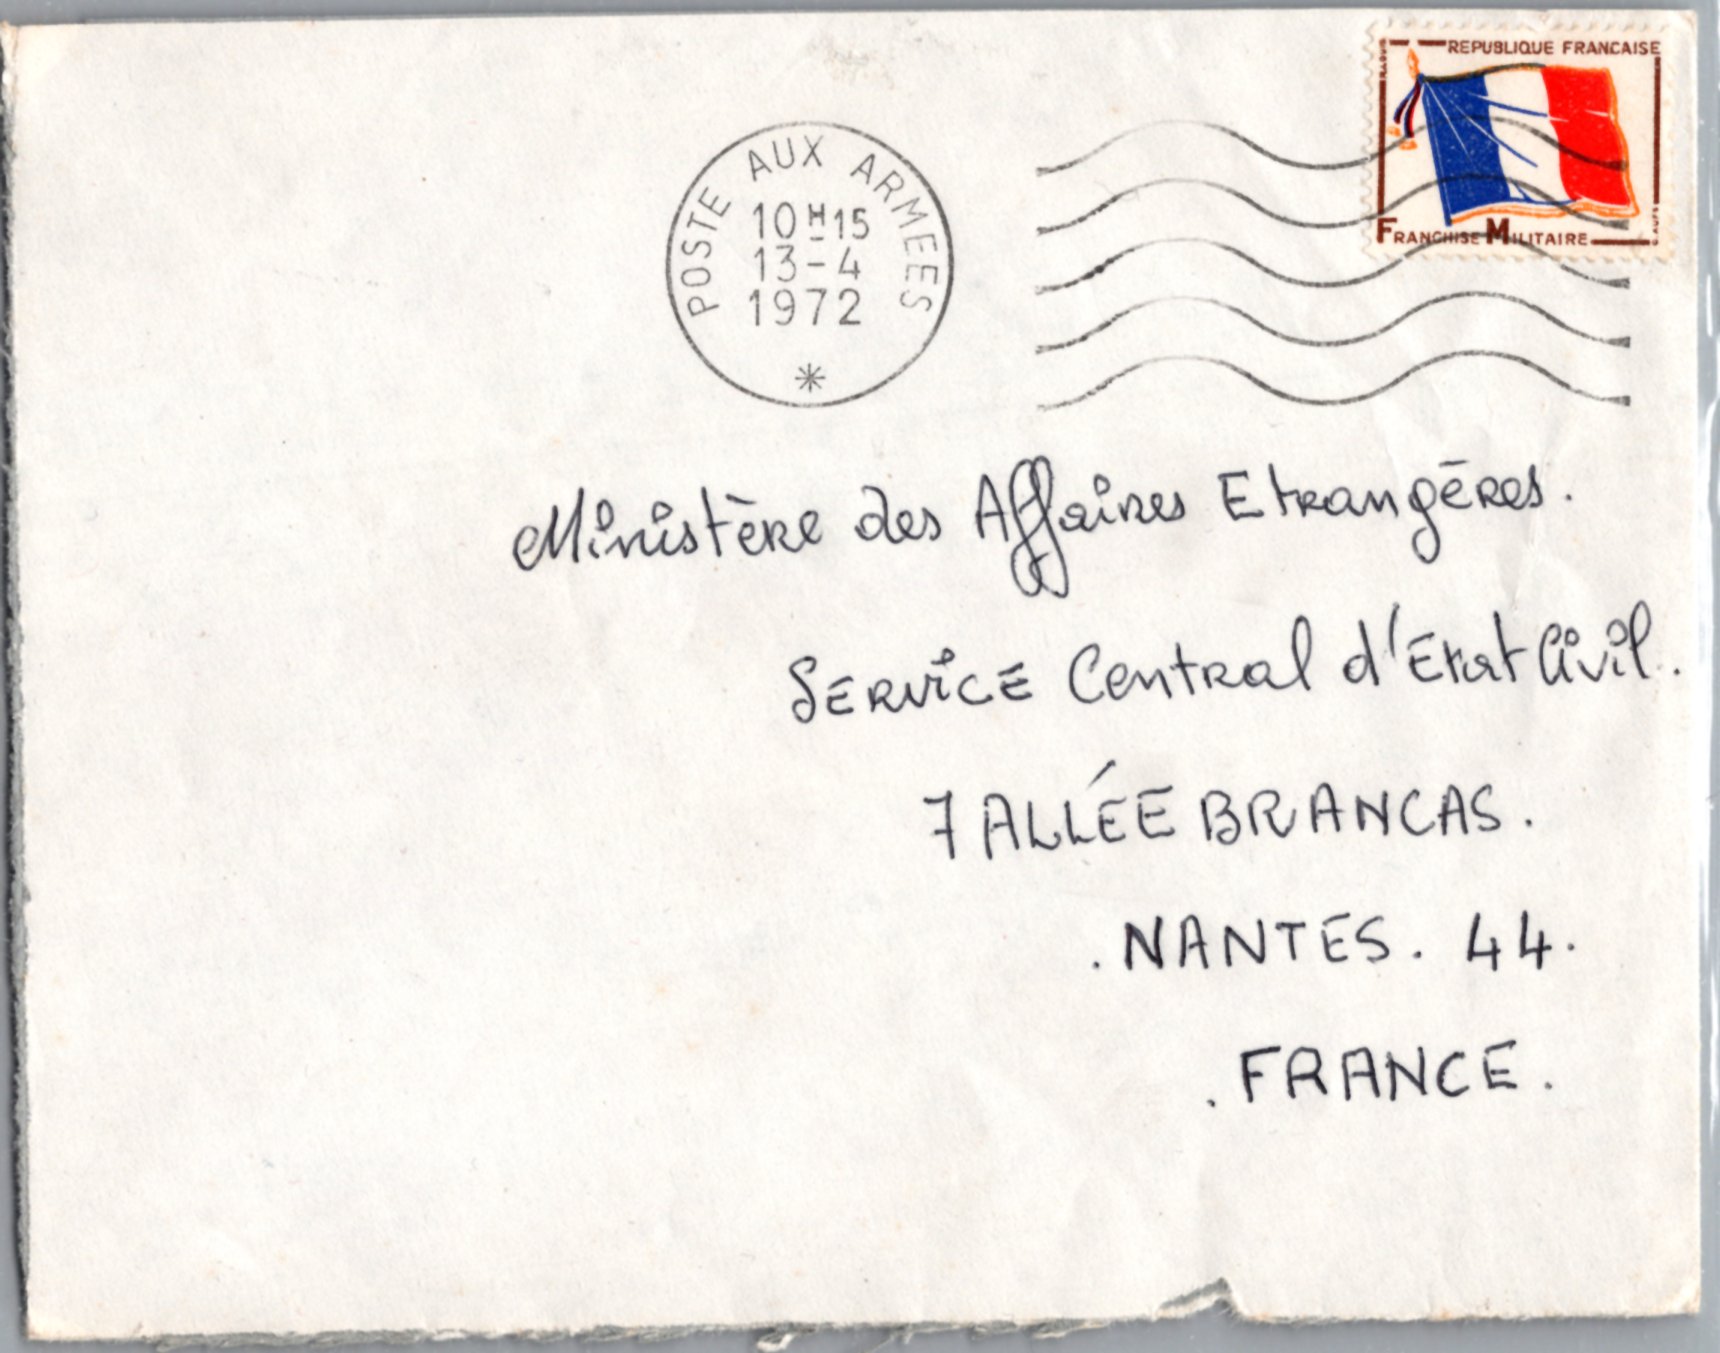 REPUBLIQUE FRANCAISE
FRANCHISE MILITAIRE
POSTE AUX ARMEES
10H15
13-4
1972
*
Ministère des Affaires Etrangēres.
SERVICE Central d'Etat Civil.
7 ALLÉE BRANCAS.
. NANTES. 44.
. FRANCE.